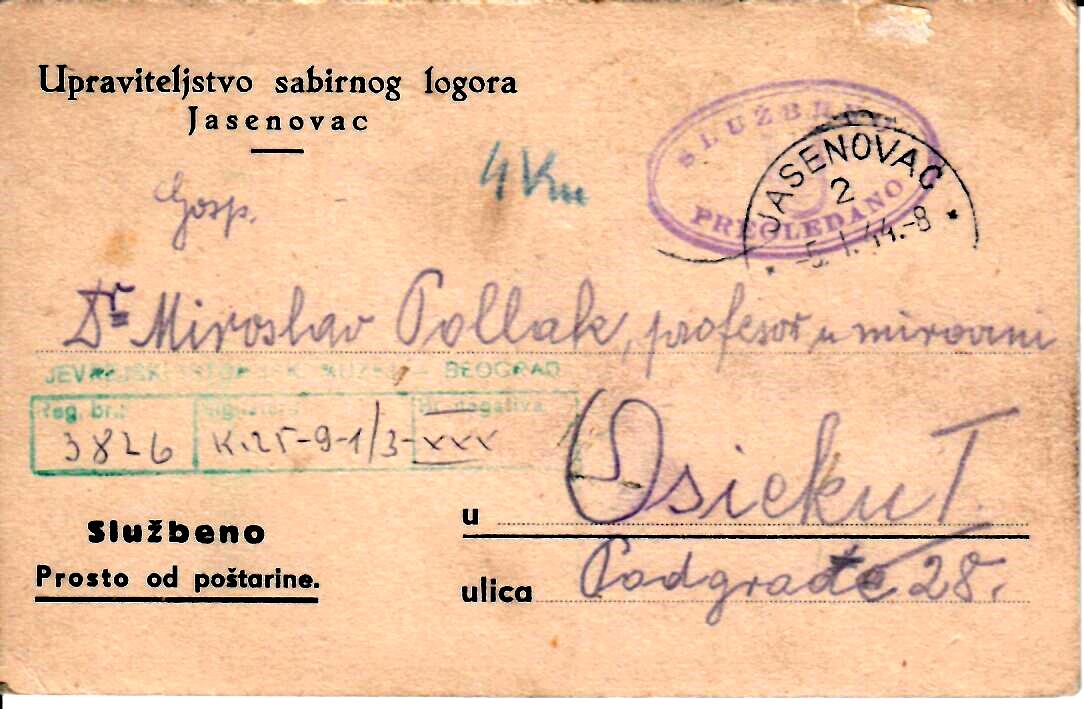 Upraviteljstvo sabirnog logora
Jasenovac
4 Kn
SLUŽBENO
PREGLEDANO
JASENOVAC
2
-5. I. 44.-8
Gosp.
Dr Miroslav Pollak, profesor u mirovini
JEVREJSKI ISTORIJSKI MUZEJ – BEOGRAD
Reg. br.: Signatura Br. negativa
3826 K.25-9-1/3-xxx
u Osieku I.
Službeno
Prosto od poštarine.
ulica Podgrađe 28.